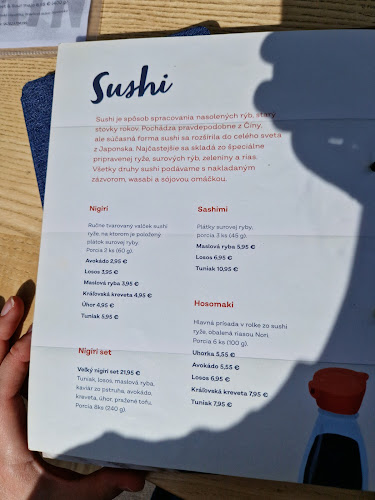 Sushi
Sushi je spôsob spracovania nasolených rýb, starý
stovky rokov. Pochádza pravdepodobne z Číny,
ale súčasná forma sushi sa rozšírila do celého sveta
z Japonska. Najčastejšie sa skladá zo špeciálne
pripravenej ryže, surových rýb, zeleniny a rias.
Všetky druhy sushi podávame s nakladaným
zázvorom, wasabi a sójovou omáčkou.
Nigiri
Ručne tvarovaný valček sushi
ryže, na ktorom je položený
plátok surovej ryby.
Porcia 2 ks (60 g).
Avokádo 2,95 €
Losos 3,95 €
Maslová ryba 3,95 €
Kráľovská kreveta 4,95 €
Úhor 4,95 €
Tuniak 5,95 €
Nigiri set
Veľký nigiri set 21,95 €
Tuniak, losos, maslová ryba,
kaviár zo pstruha, avokádo,
kreveta, úhor, pražené tofu.
Porcia 8ks (240 g).
Sashimi
Plátky surovej ryby,
porcia 3 ks (45 g).
Maslová ryba 5,95 €
Losos 6,95 €
Tuniak 10,95 €
Hosomaki
Hlavná prísada v rolke zo sushi
ryže, obalená riasou Nori.
Porcia 6 ks (100 g).
Uhorka 5,55 €
Avokádo 5,55 €
Losos 6,95 €
Kráľovská kreveta 7,95 €
Tuniak 7,95 €